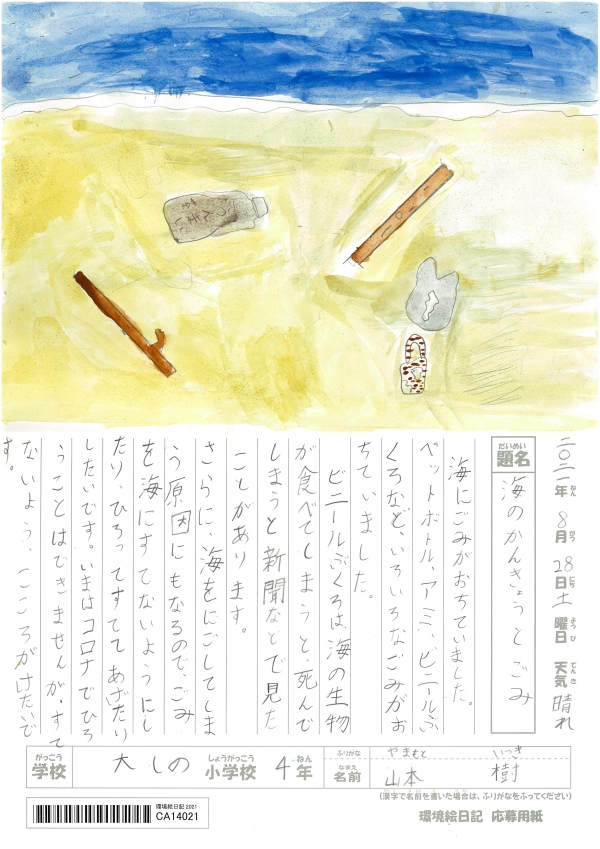 二〇二一年 8月 28日 土曜日 天気 晴れ
題名 海のかんきょうとごみ
海にごみがおちていました。
ペットボトル、アミ、ビニールぶ
くろなど、いろいろなごみがお
ちていました。
ビニールぶくろは、海の生物
が食べてしまうと死んで
しまうと新聞などで見た
ことがあります。
さらに、海をにごしてしま
う原因にもなるので、ごみ
を海にすてないようにし
たり、ひろってすててあげたり
したいです。いまはコロナでひろ
うことはできませんが、すて
ないよう、こころがけたいで
す。
がっこう 学校 大しの しょうがっこう 小学校 4年 ねん
ふりがな やまもと いつき
なまえ 名前 山本 樹
(漢字で名前を書いた場合は、ふりがなをふってください)
環境絵日記 2021
CA14021
環境絵日記 応募用紙